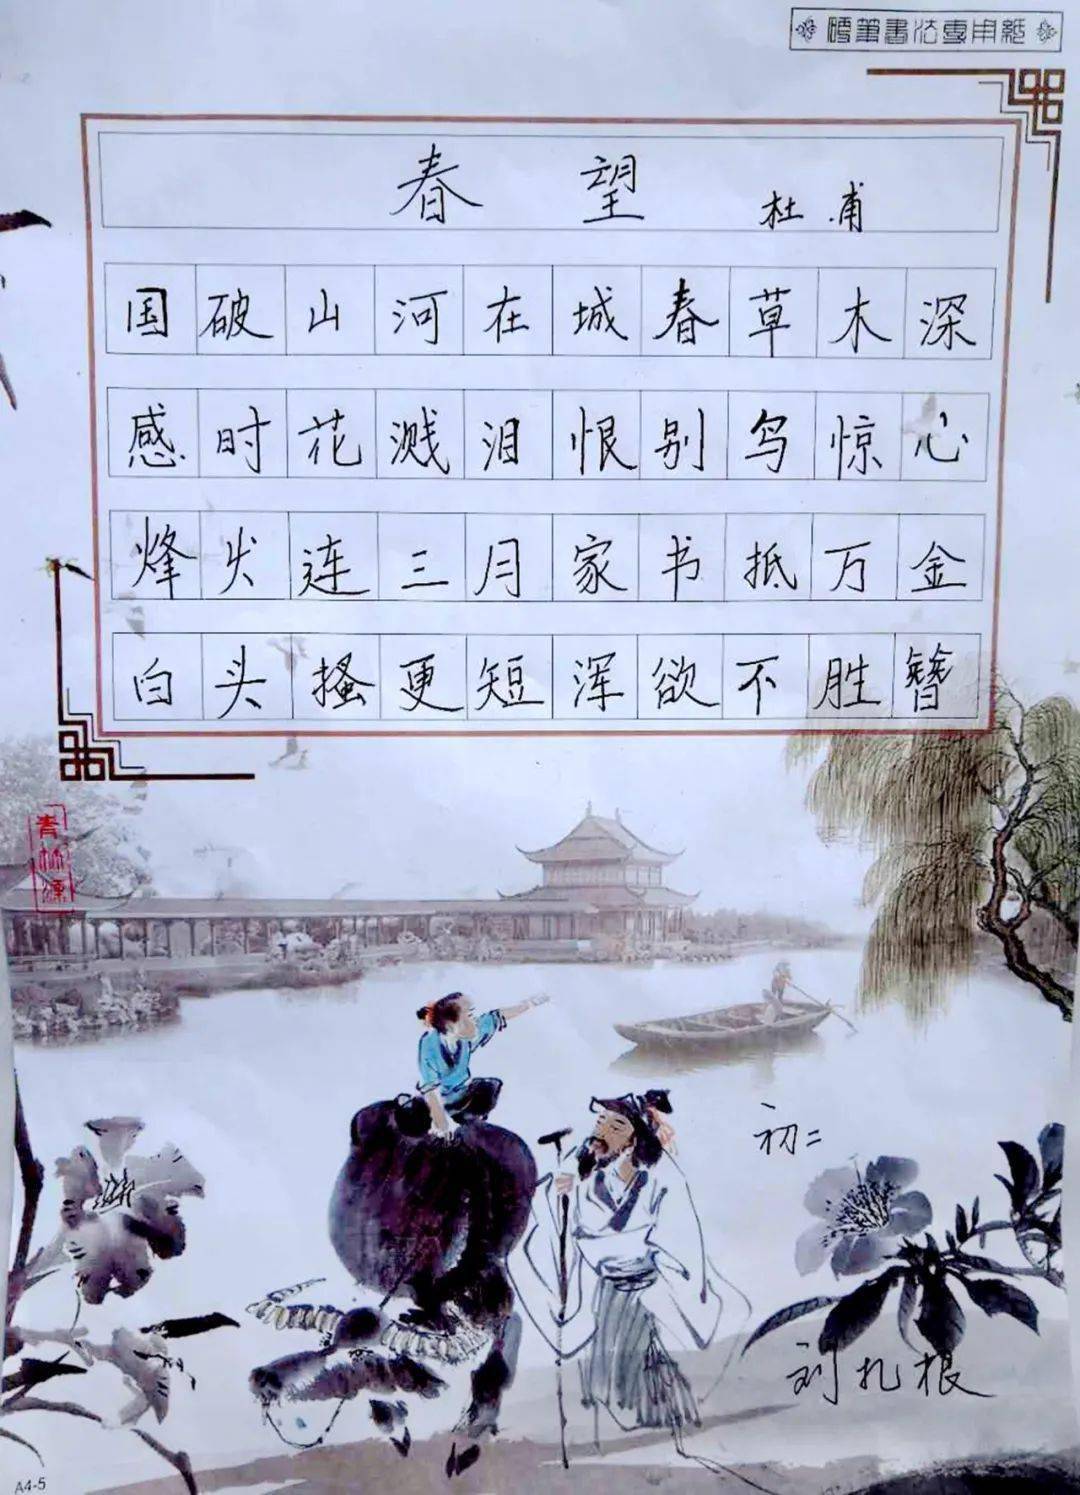 硬筆書法專用紙
春望 杜甫
国破山河在城春草木深
感时花溅泪恨别鸟惊心
烽火连三月家书抵万金
白头搔更短浑欲不胜簪
青林源
初二
刘扎根
A4-5